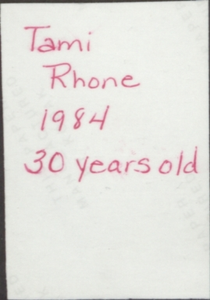 Tami
Rhone
1984
30 years old